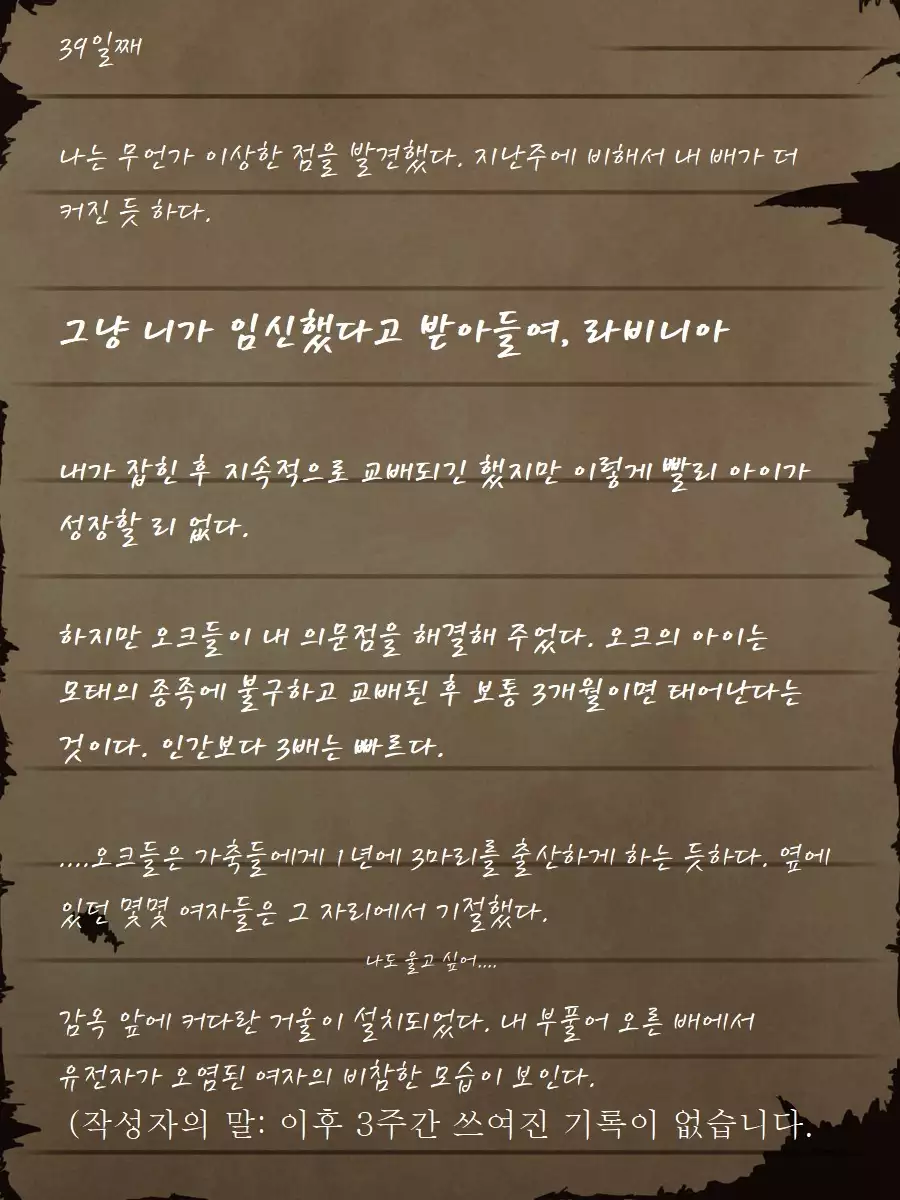 39일째
나는 무언가 이상한 점을 발견했다. 지난주에 비해서 내 배가 더
커진 듯 하다.
그냥 니가 임신했다고 받아들여, 라비니아
내가 잡힌 후 지속적으로 교배되긴 했지만 이렇게 빨리 아이가
성장할 리 없다.
하지만 오크들이 내 의문점을 해결해 주었다. 오크의 아이는
모태의 종족에 불구하고 교배된 후 보통 3개월이면 태어난다는
것이다. 인간보다 3배는 빠르다.
....오크들은 가축들에게 1년에 3마리를 출산하게 하는 듯하다. 옆에
있던 몇몇 여자들은 그 자리에서 기절했다.
나도 울고 싶어....
감옥 앞에 커다란 거울이 설치되었다. 내 부풀어 오른 배에서
유전자가 오염된 여자의 비참한 모습이 보인다.
(작성자의 말: 이후 3주간 쓰여진 기록이 없습니다.